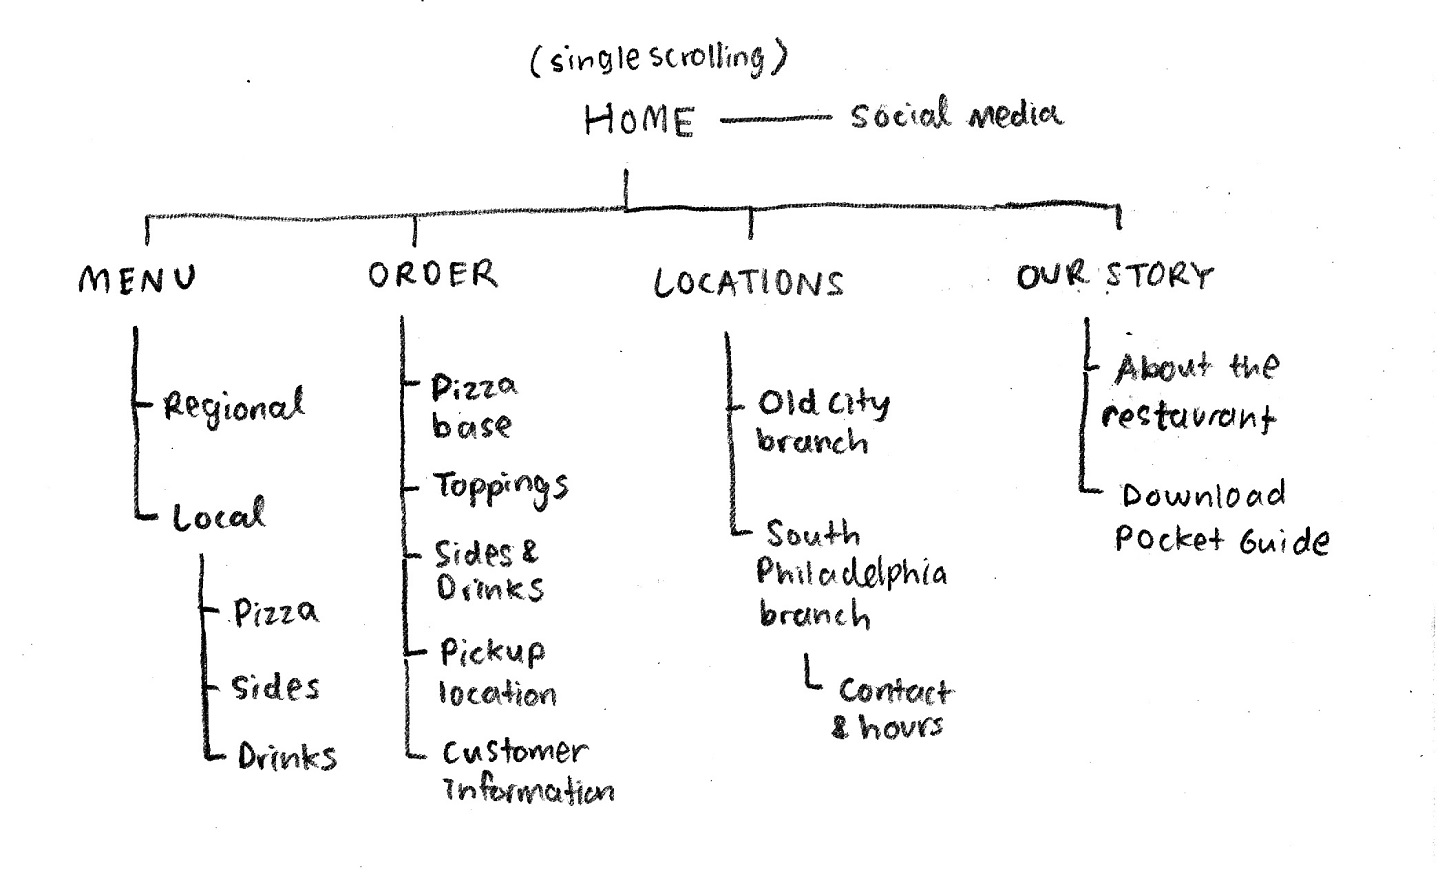 (single scrolling)
HOME — Social Media
MENU
Regional
Local
Pizza
Sides
Drinks
ORDER
Pizza
base
Toppings
Sides &
Drinks
Pickup
location
Customer
Information
LOCATIONS
Old City
branch
South
Philadelphia
branch
Contact
& hours
OUR STORY
About the
restaurant
Download
Pocket Guide